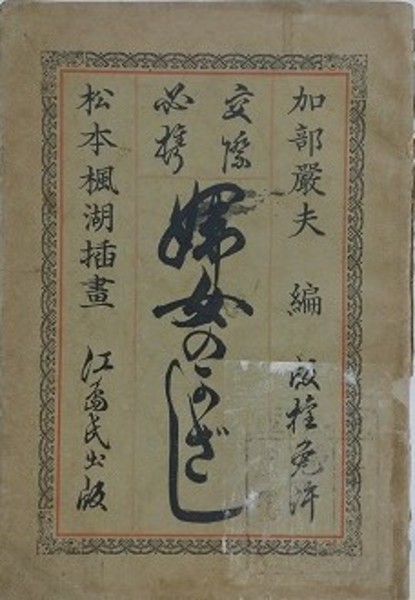 加部嚴夫 編 版權免許
交際
必携
婦女のかざし
松本楓湖插畫 江島氏出版